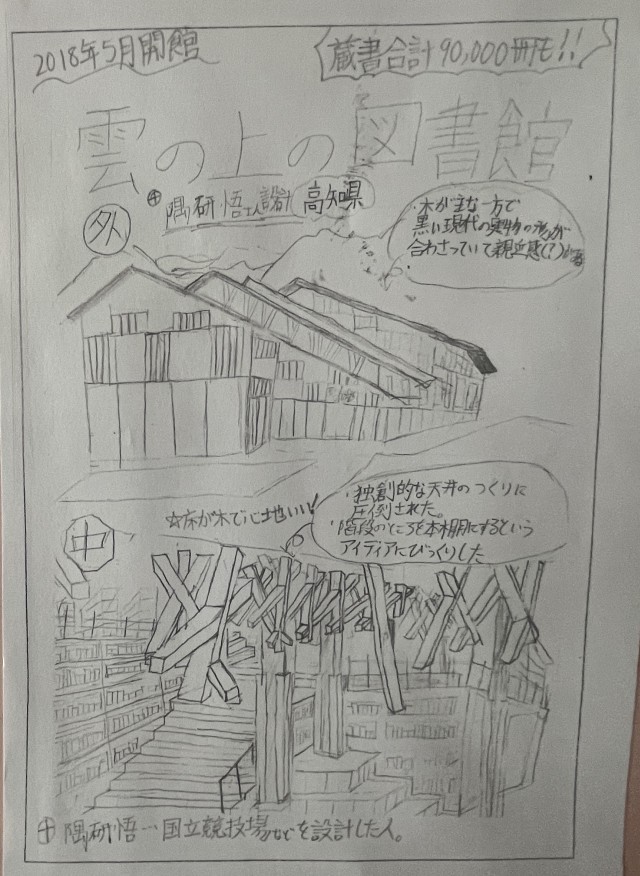 2018年5月開館
蔵書合計90,000冊も!!
雲の上の図書館
⊕隈研吾さん設計
高知県
外
・木が主な一方で
黒い現代の実物の形が
合わさっていて親近感(?)がある
中
☆床が木で心地いい!
・独創的な天井のつくりに
圧倒された。
・階段のところを本棚にするという
アイディアにびっくりした
⊕隈研吾…国立競技場などを設計した人。